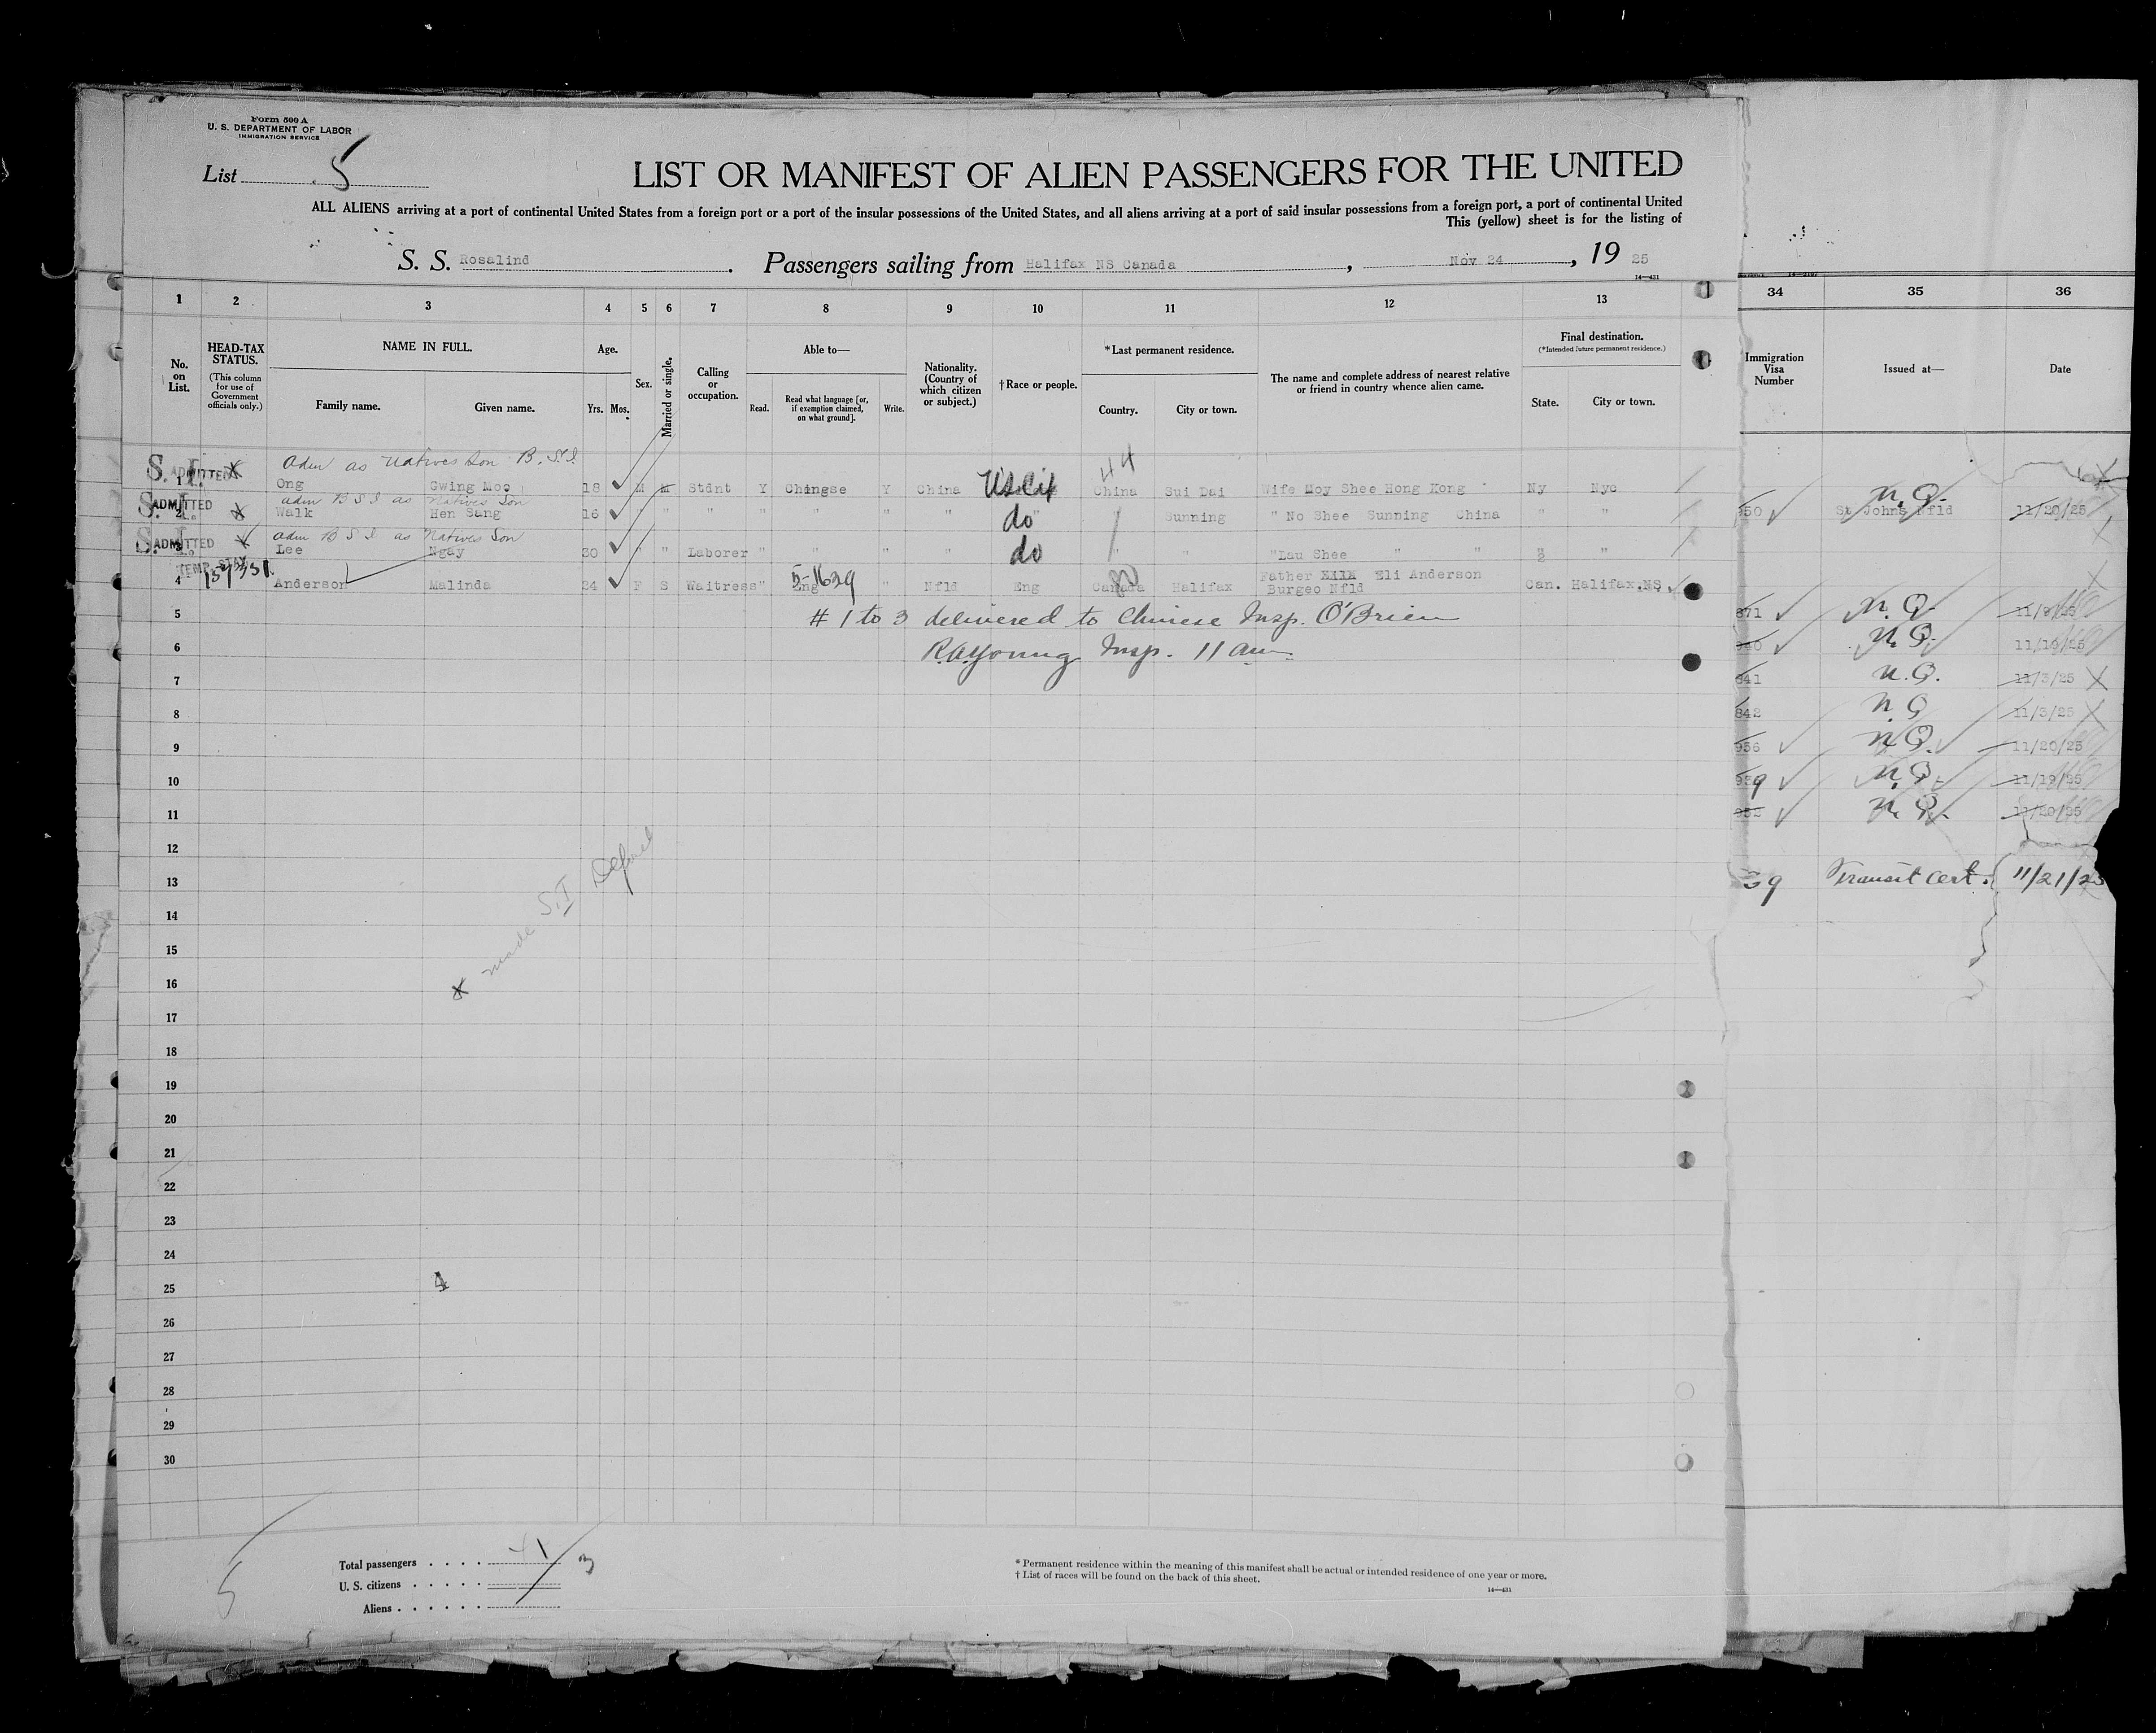 Form 500 A
U. S. DEPARTMENT OF LABOR
IMMIGRATION SERVICE
List 5
LIST OR MANIFEST OF ALIEN PASSENGERS FOR THE UNITED
ALL ALIENS arriving at a port of continental United States from a foreign port or a port of the insular possessions of the United States, and all aliens arriving at a port of said insular possessions from a foreign port, a port of continental United
This (yellow) sheet is for the listing of
S. S. Rosalind. Passengers sailing from Halifax NS Canada, Nov 24, 19 25
14—431
1 2 3 4 5 6 7 8 9 10 11 12 13
No. on List.
HEAD-TAX STATUS.
(This column for use of Government officials only.)
NAME IN FULL.
Family name.
Given name.
Age.
Yrs. Mos.
Sex.
Married or single.
Calling or occupation.
Able to—
Read.
Read what language [or, if exemption claimed, on what ground].
Write.
Nationality. (Country of which citizen or subject.)
†Race or people.
*Last permanent residence.
Country.
City or town.
The name and complete address of nearest relative or friend in country whence alien came.
Final destination.
(*Intended future permanent residence.)
State.
City or town.
34 35 36
Immigration Visa Number
Issued at—
Date
Adm as Natives Son B.S.I.
S. I. ADMITTED 1 X Ong Gwing Moo 18 M M Stdnt Y Chinese Y China US Cit China 44 Sui Dai Wife Moy Shee Hong Kong Ny Nyc
adm B S I as Natives Son
S. I. ADMITTED 2 X Walk Hen Sang 16 " " " " " " " do " Sunning " No Shee Sunning China " "
adm B S I as Natives Son
S. I. ADMITTED 3 X Lee Ngay 30 " " Laborer " " " " do " " "Lau Shee " " " "
TEMP. STAY
4 Anderson Malinda 24 F S Waitress " Eng 5-1639 " Nfld Eng Canada 80 Halifax Father Eli Anderson Burgeo Nfld Can. Halifax,NS
5 # 1 to 3 delivered to Chinese Insp. O'Brien
6 R.A. Young Insp. 11 am
7
8
9
10
11
12
13
14
15
16
17
18
19
20
21
22
23
24
25
26
27
28
29
30
X made S.I. Deferred
4
350 N.Q. St Johns Nfld 11/20/25
871 N.Q. 11/9/25
940 N.Q. 11/19/25
841 N.Q. 11/3/25
842 N.Q. 11/3/25
956 N.Q. 11/20/25
939 N.Q. 11/19/25
952 N.Q. 11/20/25
39 Transit Cert. 11/21/25
5
Total passengers . . . .
U. S. citizens . . . . .
Aliens . . . . . .
3
* Permanent residence within the meaning of this manifest shall be actual or intended residence of one year or more.
† List of races will be found on the back of this sheet.
14—431